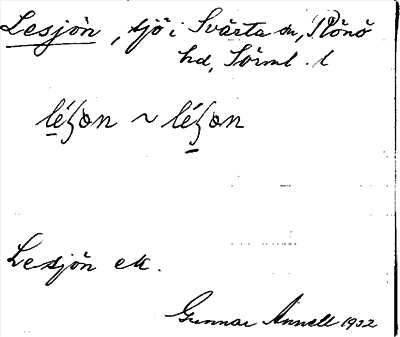 Lesjön, sjö i Svärta sn, Rönö
hd, Sörml. l
léʃon ~ léʃon
Lesjön ek.
Gunnar Annell 1932